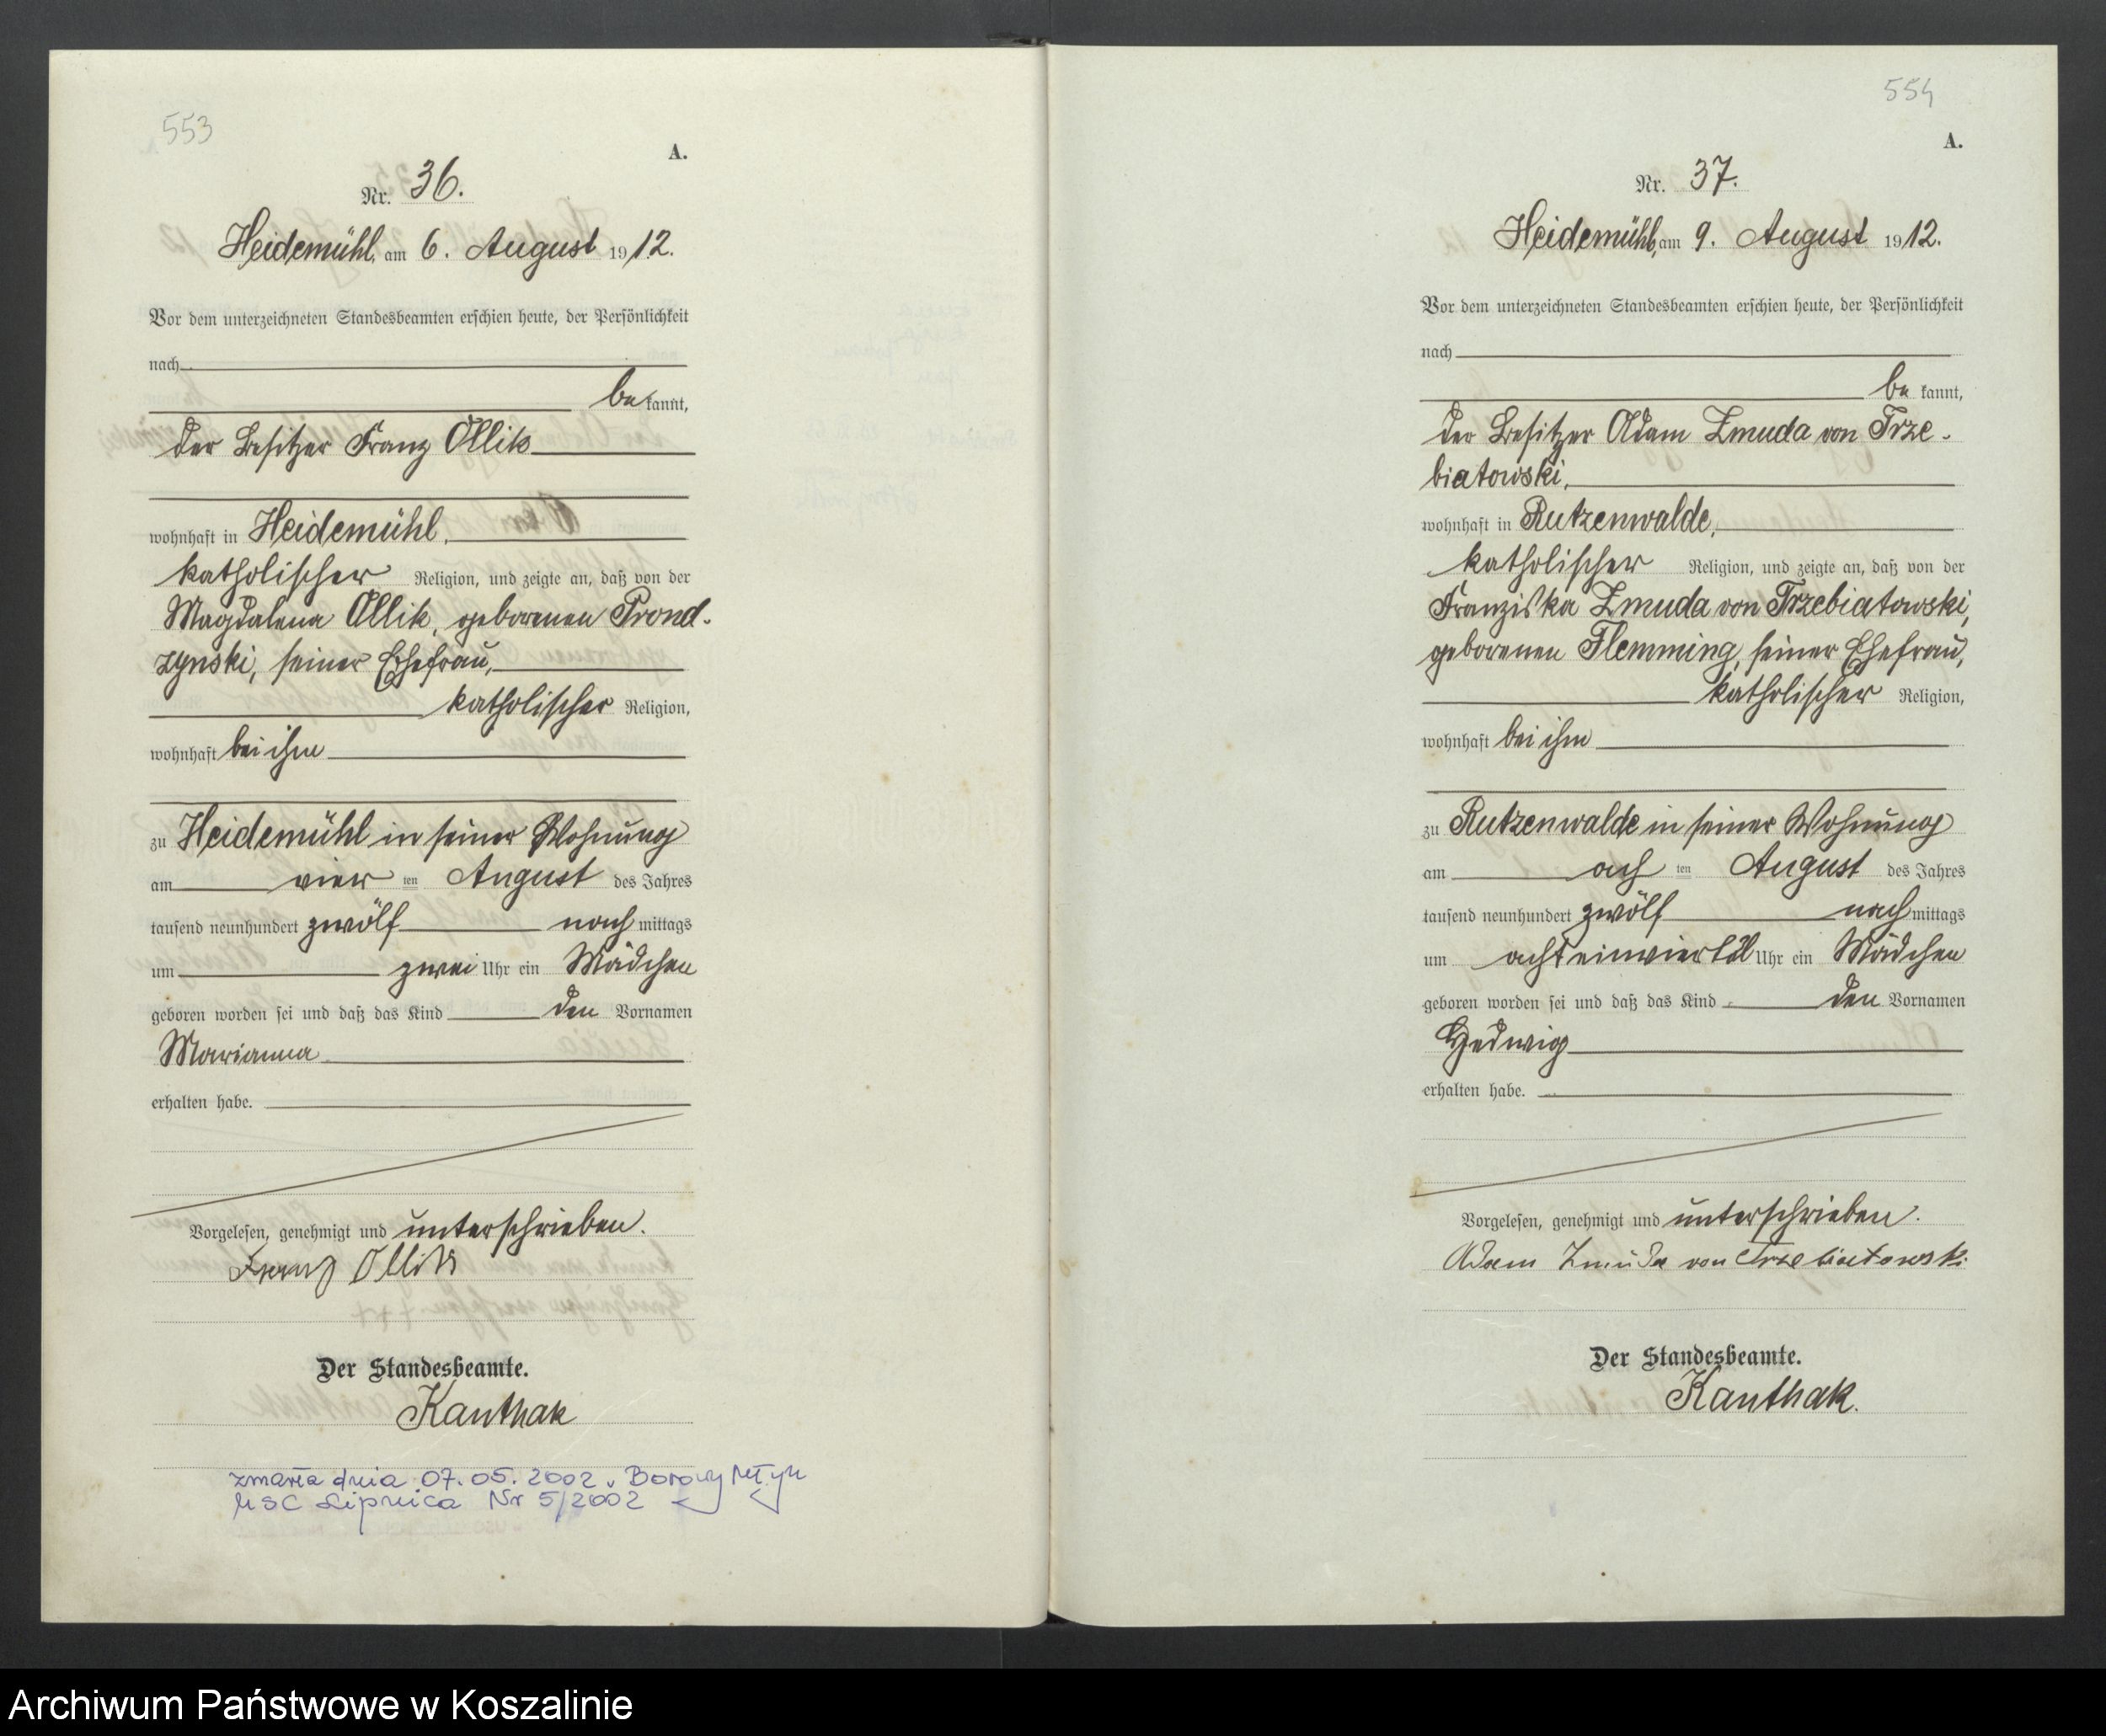 553
A.
Nr. 36.
Heidemühl, am 6. August 1912.
Vor dem unterzeichneten Standesbeamten erschien heute, der Persönlichkeit
nach
be kannt,
der Besitzer Franz Ollik
wohnhaft in Heidemühl,
katholischer Religion, und zeigte an, daß von der
Magdalena Ollik, geborenen Prond-
zynski, seiner Ehefrau,
katholischer Religion,
wohnhaft bei ihm
zu Heidemühl in seiner Wohnung
am vier ten August des Jahres
tausend neunhundert zwölf nach mittags
um zwei Uhr ein Mädchen
geboren worden sei und daß das Kind den Vornamen
Marianna
erhalten habe.
Vorgelesen, genehmigt und unterschrieben.
Franz Ollik
Der Standesbeamte.
Kanthak
zmarła dnia 07.05.2002 w Borowy Młyn
USC Lipnica Nr 5/2002
554
A.
Nr. 37.
Heidemühl, am 9. August 1912.
Vor dem unterzeichneten Standesbeamten erschien heute, der Persönlichkeit
nach
be kannt,
der Besitzer Adam Zmuda von Trze-
biatowski,
wohnhaft in Rutzenwalde,
katholischer Religion, und zeigte an, daß von der
Franziska Zmuda von Trzebiatowski,
geborenen Flemming, seiner Ehefrau,
katholischer Religion,
wohnhaft bei ihm
zu Rutzenwalde in seiner Wohnung
am ach ten August des Jahres
tausend neunhundert zwölf nach mittags
um acht einviertel Uhr ein Mädchen
geboren worden sei und daß das Kind den Vornamen
Hedwig
erhalten habe.
Vorgelesen, genehmigt und unterschrieben.
Adam Zmuda von Trzebiatowski
Der Standesbeamte.
Kanthak.
Archiwum Państwowe w Koszalinie